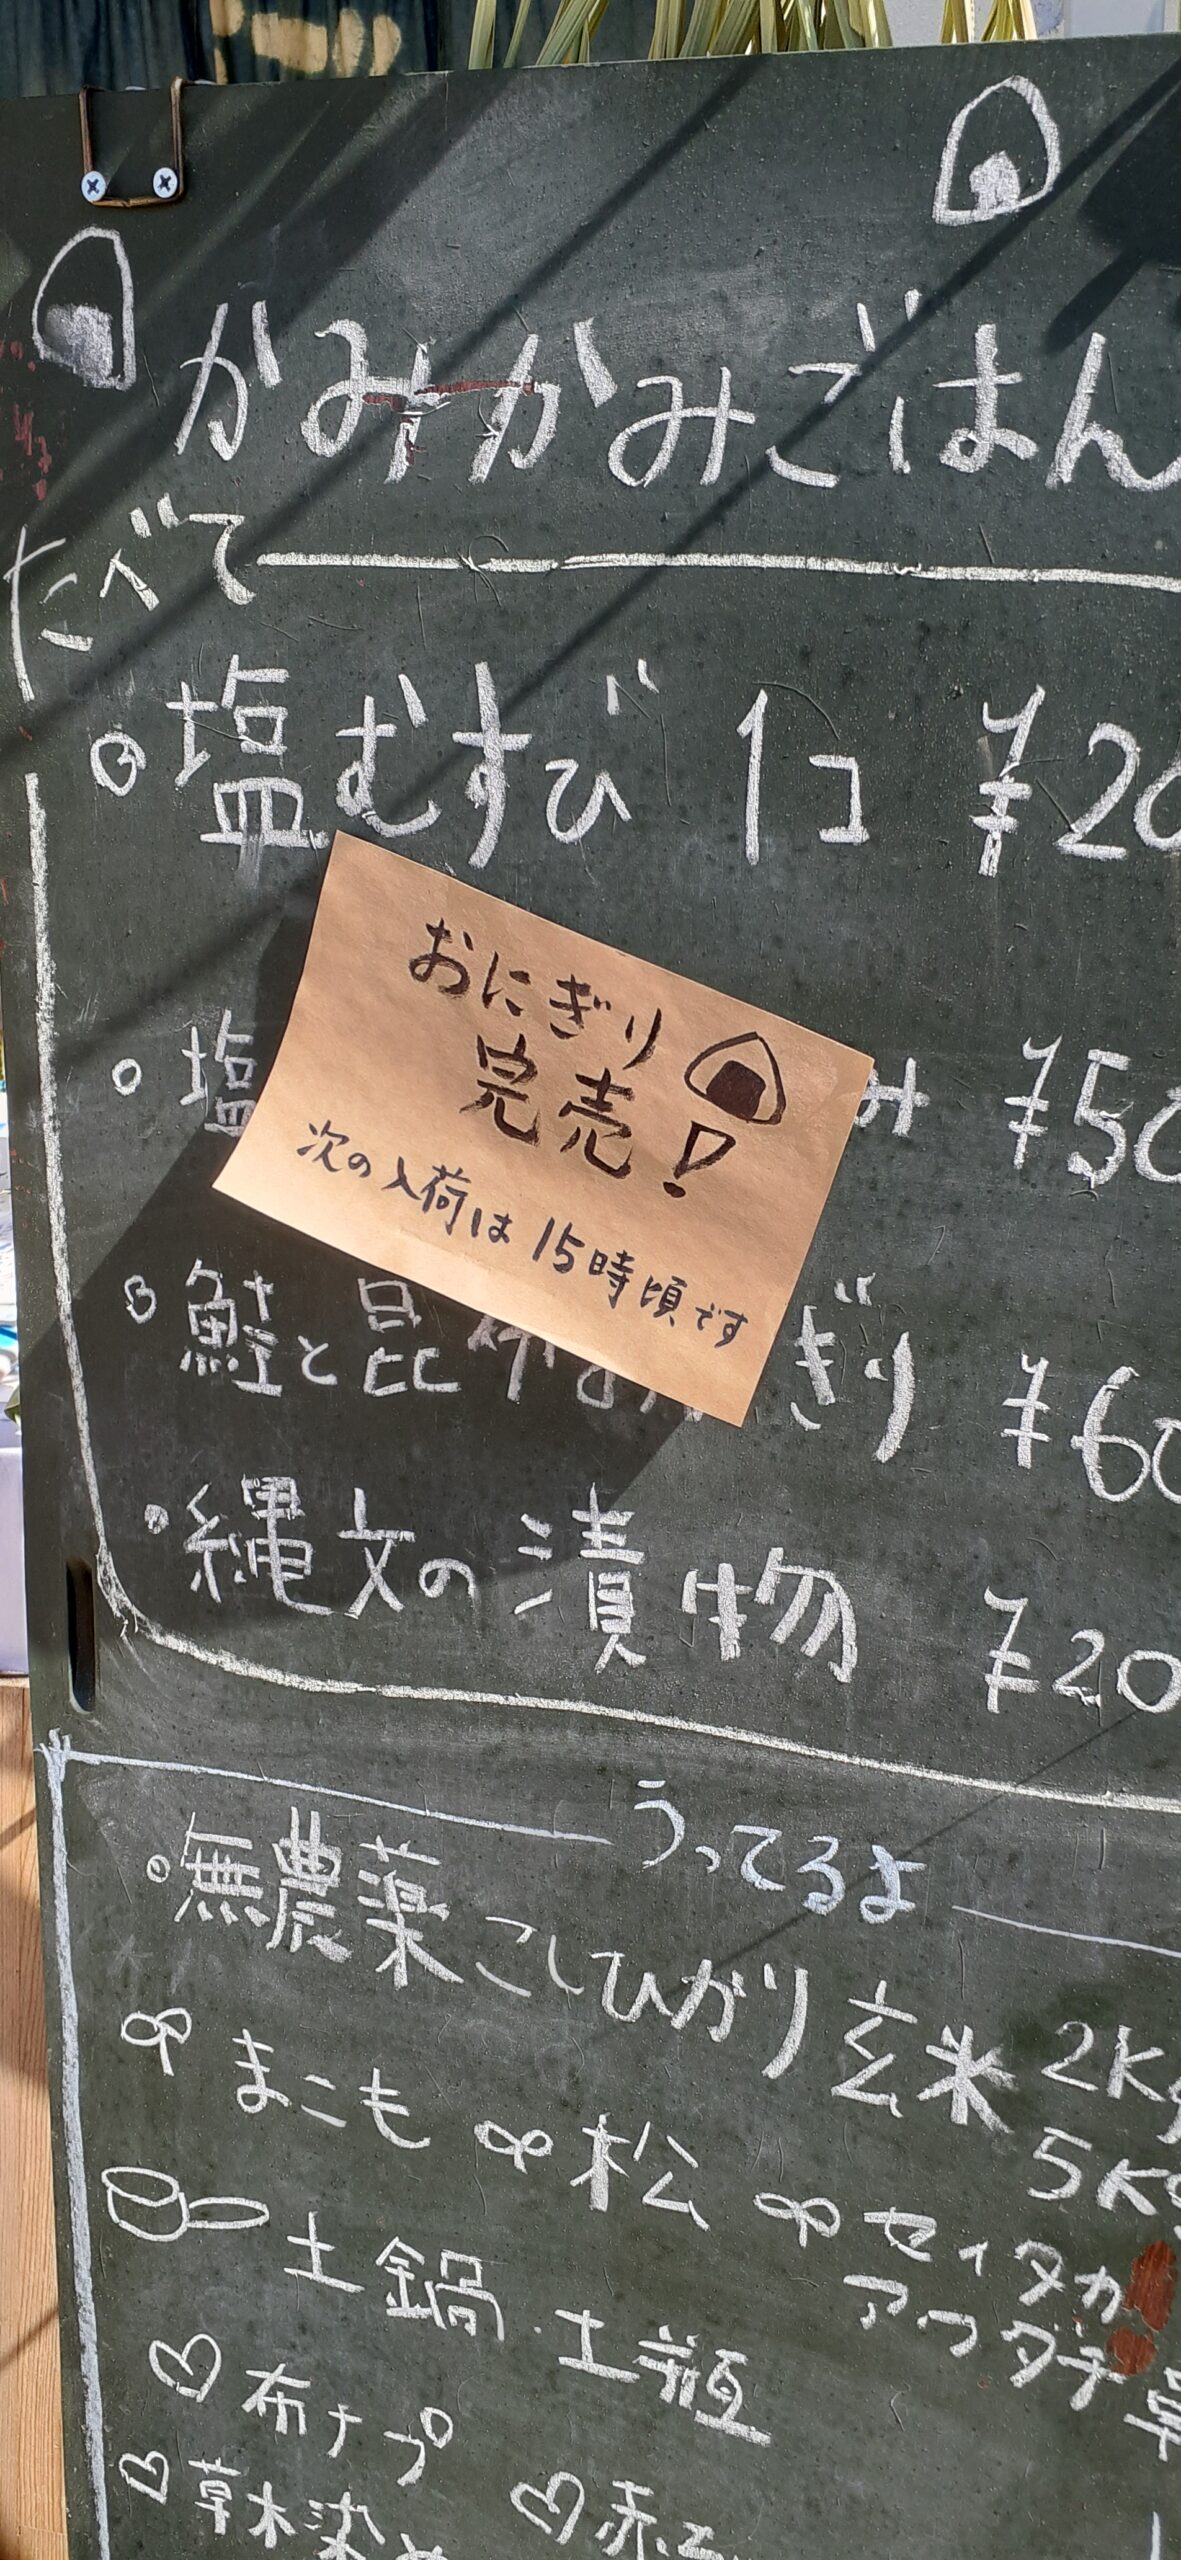 かみかみごはん
たべて
塩むすび 1コ ¥20
おにぎり
完売!
次の入荷は15時頃です
塩 み ¥50
鮭と昆布 ぎり ¥60
縄文の漬物 ¥20
うってるよ
無農薬こしひかり玄米 2Kg
5Kg
まこも 松 セイタカ
アワダチ草
土鍋・土瓶
布ナプ
草木染め 赤